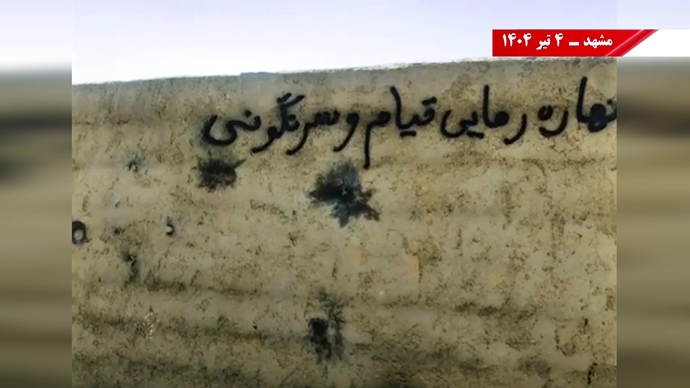 مشهد ـ ۴ تیر ۱۴۰۴
تنهاره رهایی قیام و سرنگونی